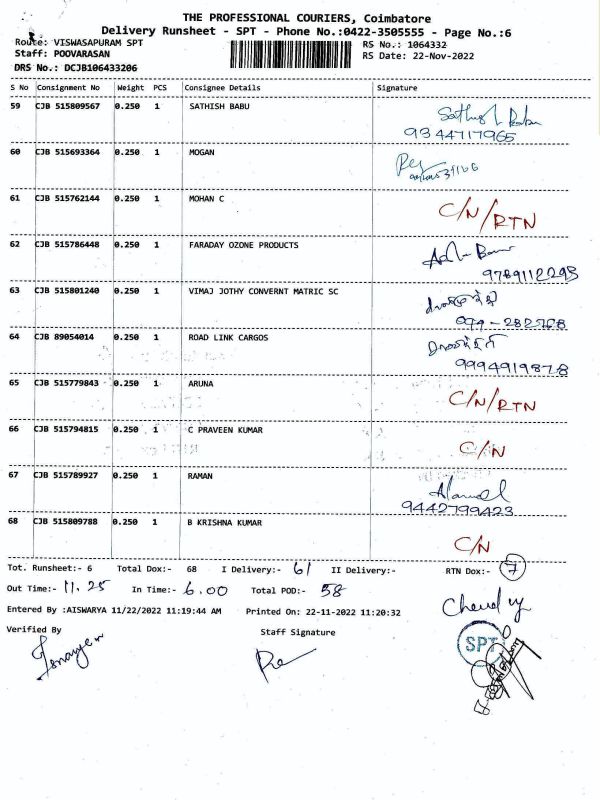 THE PROFESSIONAL COURIERS, Coimbatore
Delivery Runsheet - SPT - Phone No.:0422-3505555 - Page No.:6
Route: VISWASAPURAM SPT RS No.: 1064332
Staff: POOVARASAN RS Date: 22-Nov-2022
DRS No.: DCJB106433206
S No Consignment No Weight PCS Consignee Details Signature
59 CJB 515809567 0.250 1 SATHISH BABU Sathish Babu
9344717965
60 CJB 515693364 0.250 1 MOGAN
61 CJB 515762144 0.250 1 MOHAN C C/N/RTN
62 CJB 515786448 0.250 1 FARADAY OZONE PRODUCTS
9789112293
63 CJB 515801240 0.250 1 VIMAJ JOTHY CONVERNT MATRIC SC
64 CJB 89054014 0.250 1 ROAD LINK CARGOS
9994919878
65 CJB 515779843 0.250 1 ARUNA C/N/RTN
66 CJB 515794815 0.250 1 C PRAVEEN KUMAR C/N
67 CJB 515789927 0.250 1 RAMAN
9442799423
68 CJB 515809788 0.250 1 B KRISHNA KUMAR C/N
Tot. Runsheet:- 6 Total Dox:- 68 I Delivery:- 61 II Delivery:- RTN Dox:- 7
Out Time:- 11.25 In Time:- 6.00 Total POD:- 58
Entered By :AISWARYA 11/22/2022 11:19:44 AM Printed On: 22-11-2022 11:20:32
Verified By Staff Signature
SPT